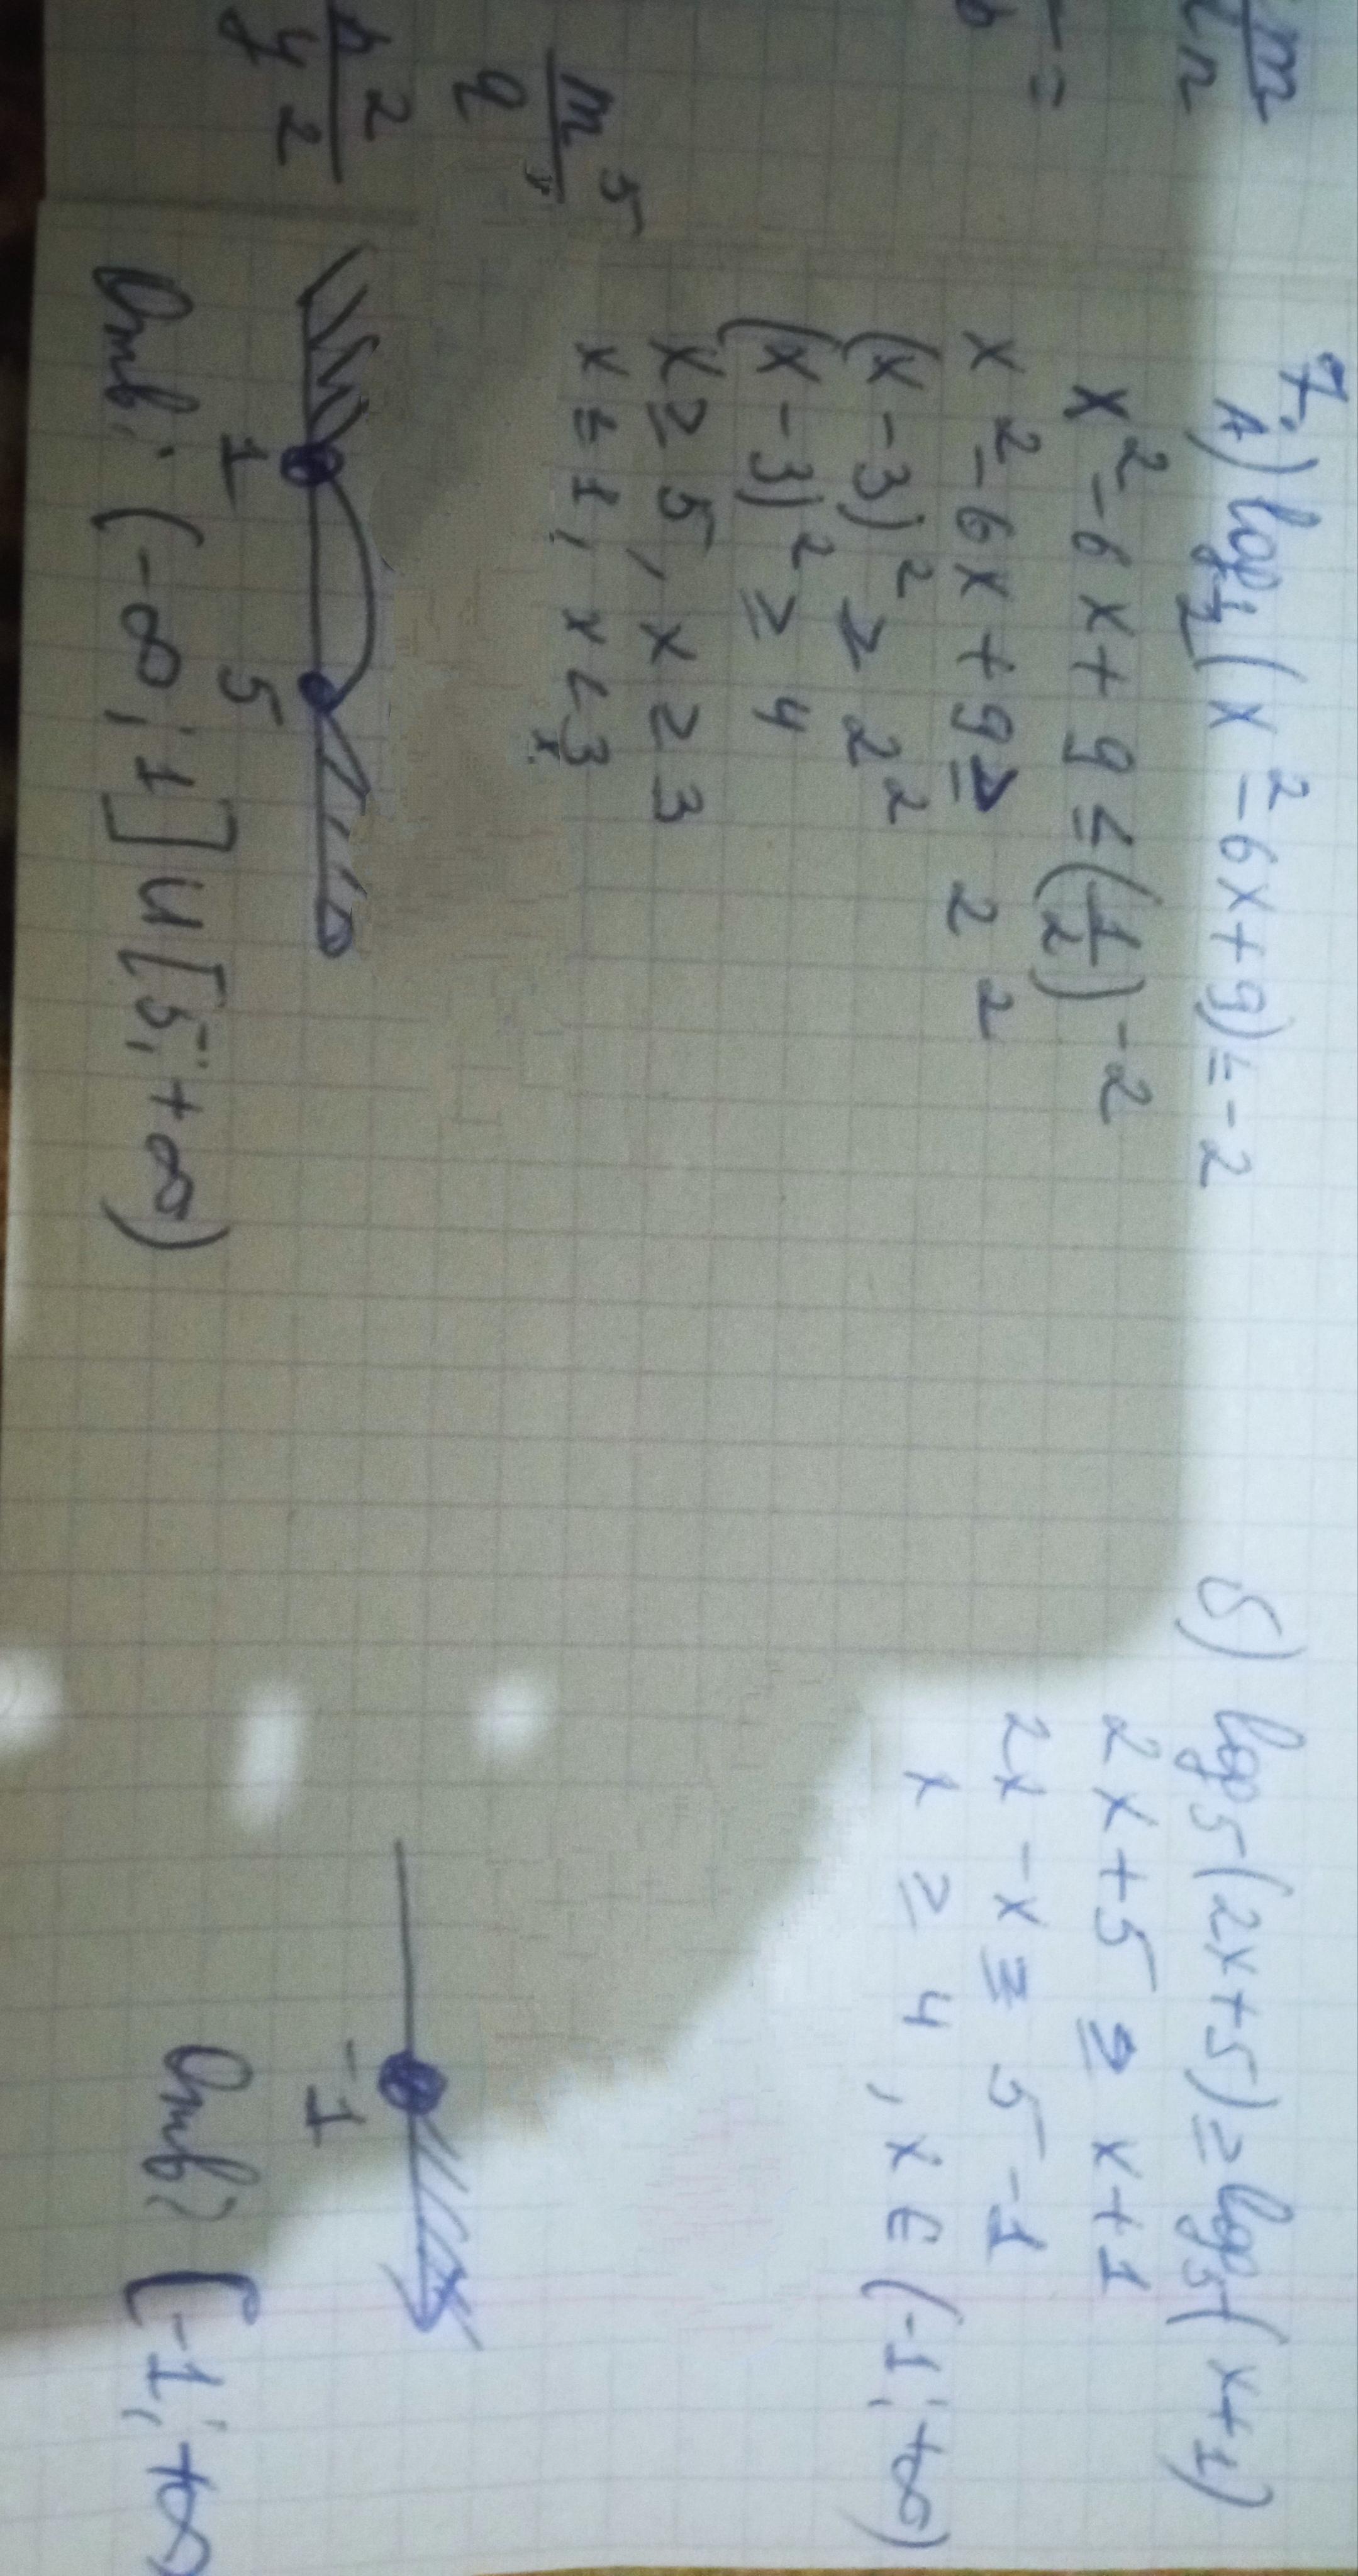 7.
А) log_{1/2}(x² - 6x + 9) ≤ -2
x² - 6x + 9 ≤ (1/2)^{-2}
x² - 6x + 9 ≥ 2²
(x - 3)² ≥ 2²
(x - 3)² ≥ 4
x ≥ 5, x ≥ 3
x ≤ 1, x < 3
1 5
Отв: (-∞; 1] U [5; +∞)
Б) log₅(2x+5) ≥ log₅(x+1)
2x + 5 ≥ x + 1
2x - x ≥ 5 - 1
x ≥ 4, x ∈ (-1; +∞)
-1
Отв: [-1; +∞
m⁵
y²